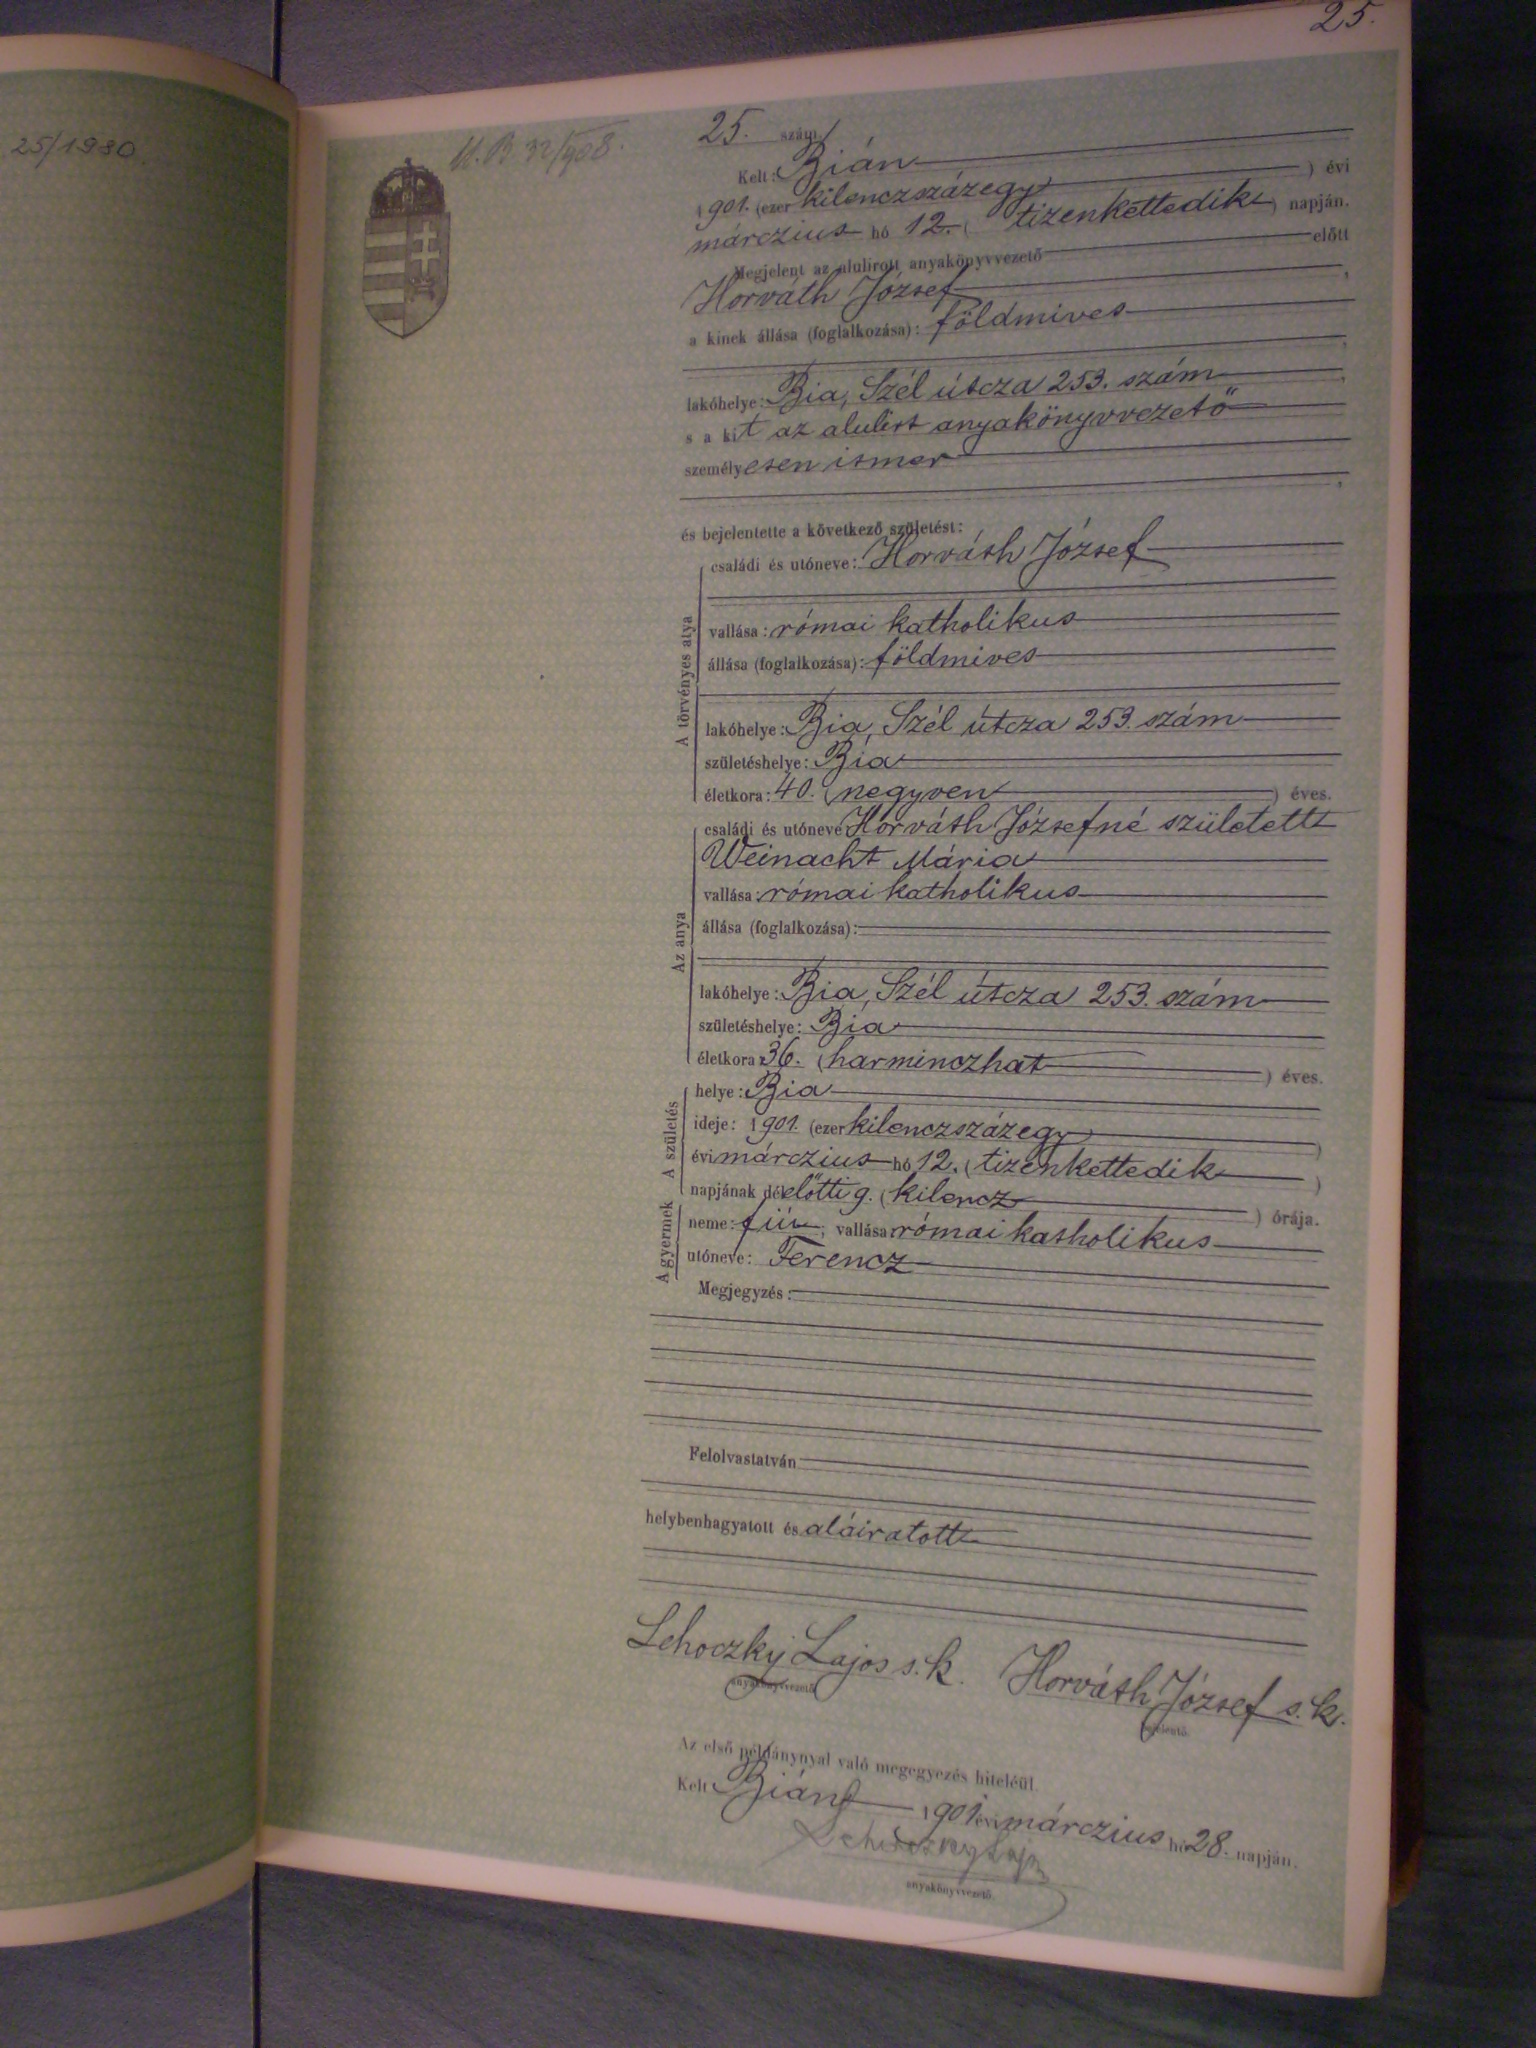 25.
25/1980.
U. B 32/908.
25. szám
Kelt: Bián
1901. (ezer kilenczszázegy) évi
márczius hó 12. (tizenkettedik) napján.
Megjelent az alulirott anyakönyvvezető előtt
Horváth József,
a kinek állása (foglalkozása): földmives
lakóhelye: Bia, Szél útcza 253. szám,
s a kit az alulirt anyakönyvvezető
személyesen ismer,
és bejelentette a következő születést:
A törvényes atya
családi és utóneve: Horváth József
vallása: római katholikus
állása (foglalkozása): földmives
lakóhelye: Bia, Szél útcza 253. szám
születéshelye: Bia
életkora: 40. (negyven) éves.
Az anya
családi és utóneve Horváth Józsefné született
Weinacht Mária
vallása: római katholikus
állása (foglalkozása):
lakóhelye: Bia, Szél útcza 253. szám
születéshelye: Bia
életkora 36. (harminczhat) éves.
A születés
helye: Bia
ideje: 1901. (ezer kilenczszázegy)
évi márczius hó 12. (tizenkettedik)
napjának délelőtti 9. (kilencz) órája.
A gyermek
neme: fiú; vallása római katholikus
utóneve: Ferencz
Megjegyzés:
Felolvastatván
helybenhagyatott és aláiratott
Lehoczky Lajos s. k. Horváth József s. k.
anyakönyvvezető bejelentő.
Az első példánynyal való megegyezés hiteléül.
Kelt Bián 1901 évi márczius hó 28. napján.
Lehoczky Lajos
anyakönyvvezető.